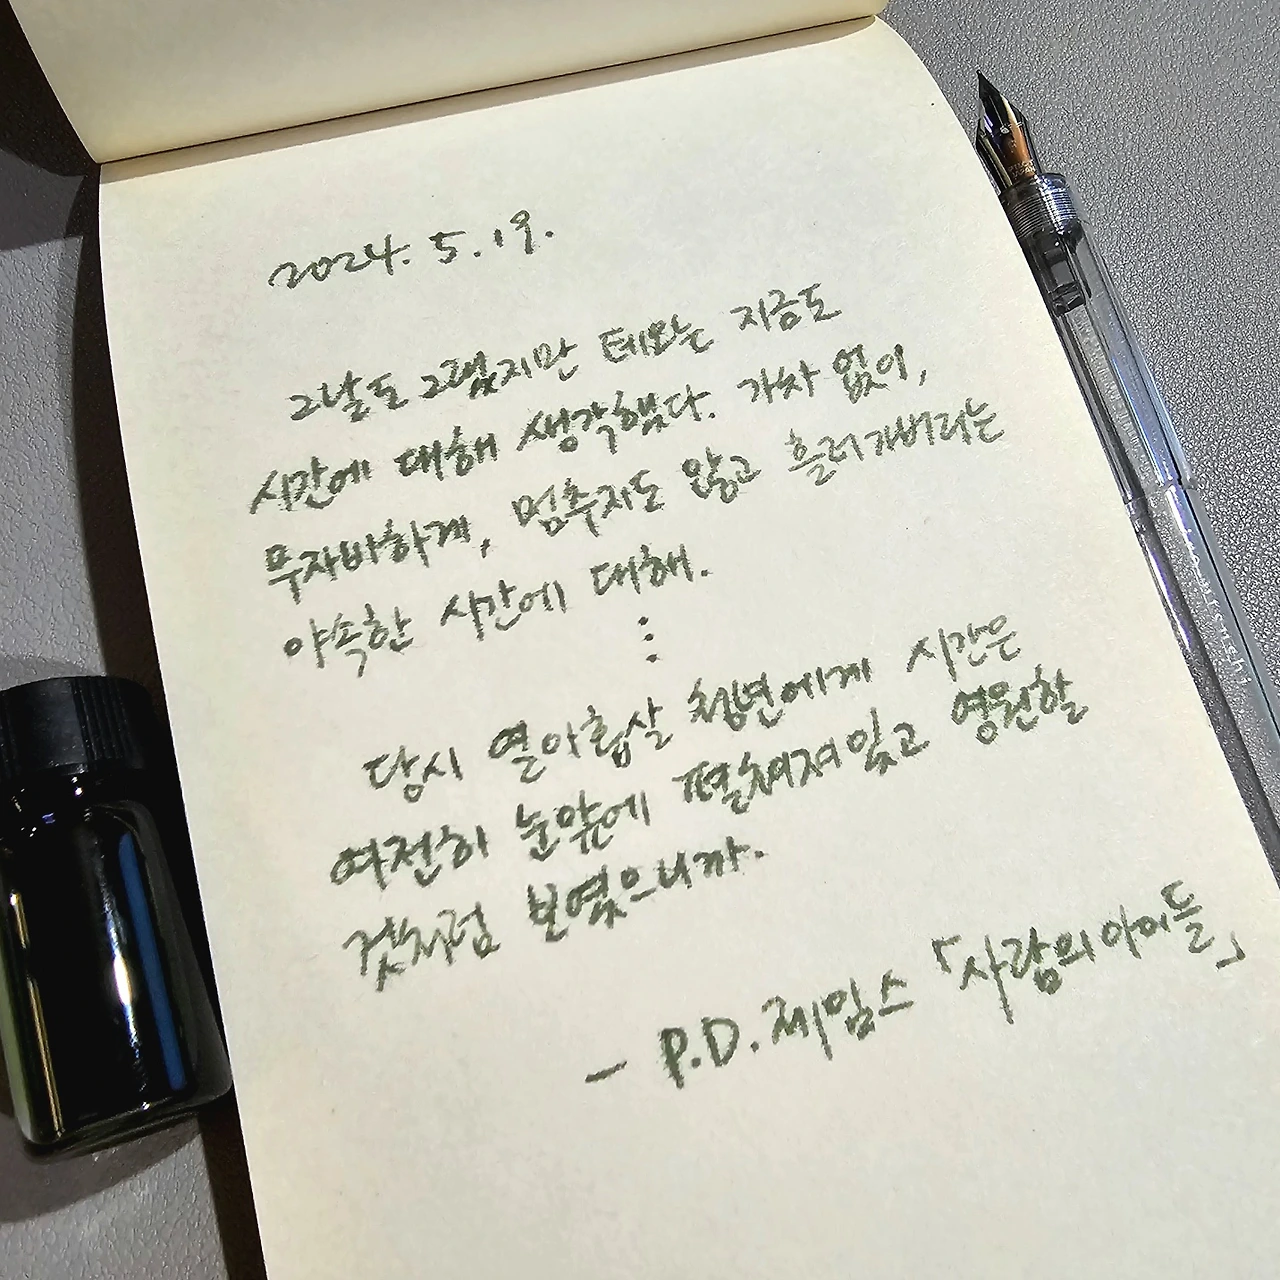 2024. 5. 19.
그날도 그랬지만 테오는 지금도
시간에 대해 생각했다. 가차 없이,
무자비하게, 멈추지도 않고 흘러가버리는
야속한 시간에 대해.
⋮
당시 열아홉살 청년에게 시간은
여전히 눈앞에 펼쳐져있고 영원할
것처럼 보였으니까.
- P.D. 제임스 「사람의 아이들」